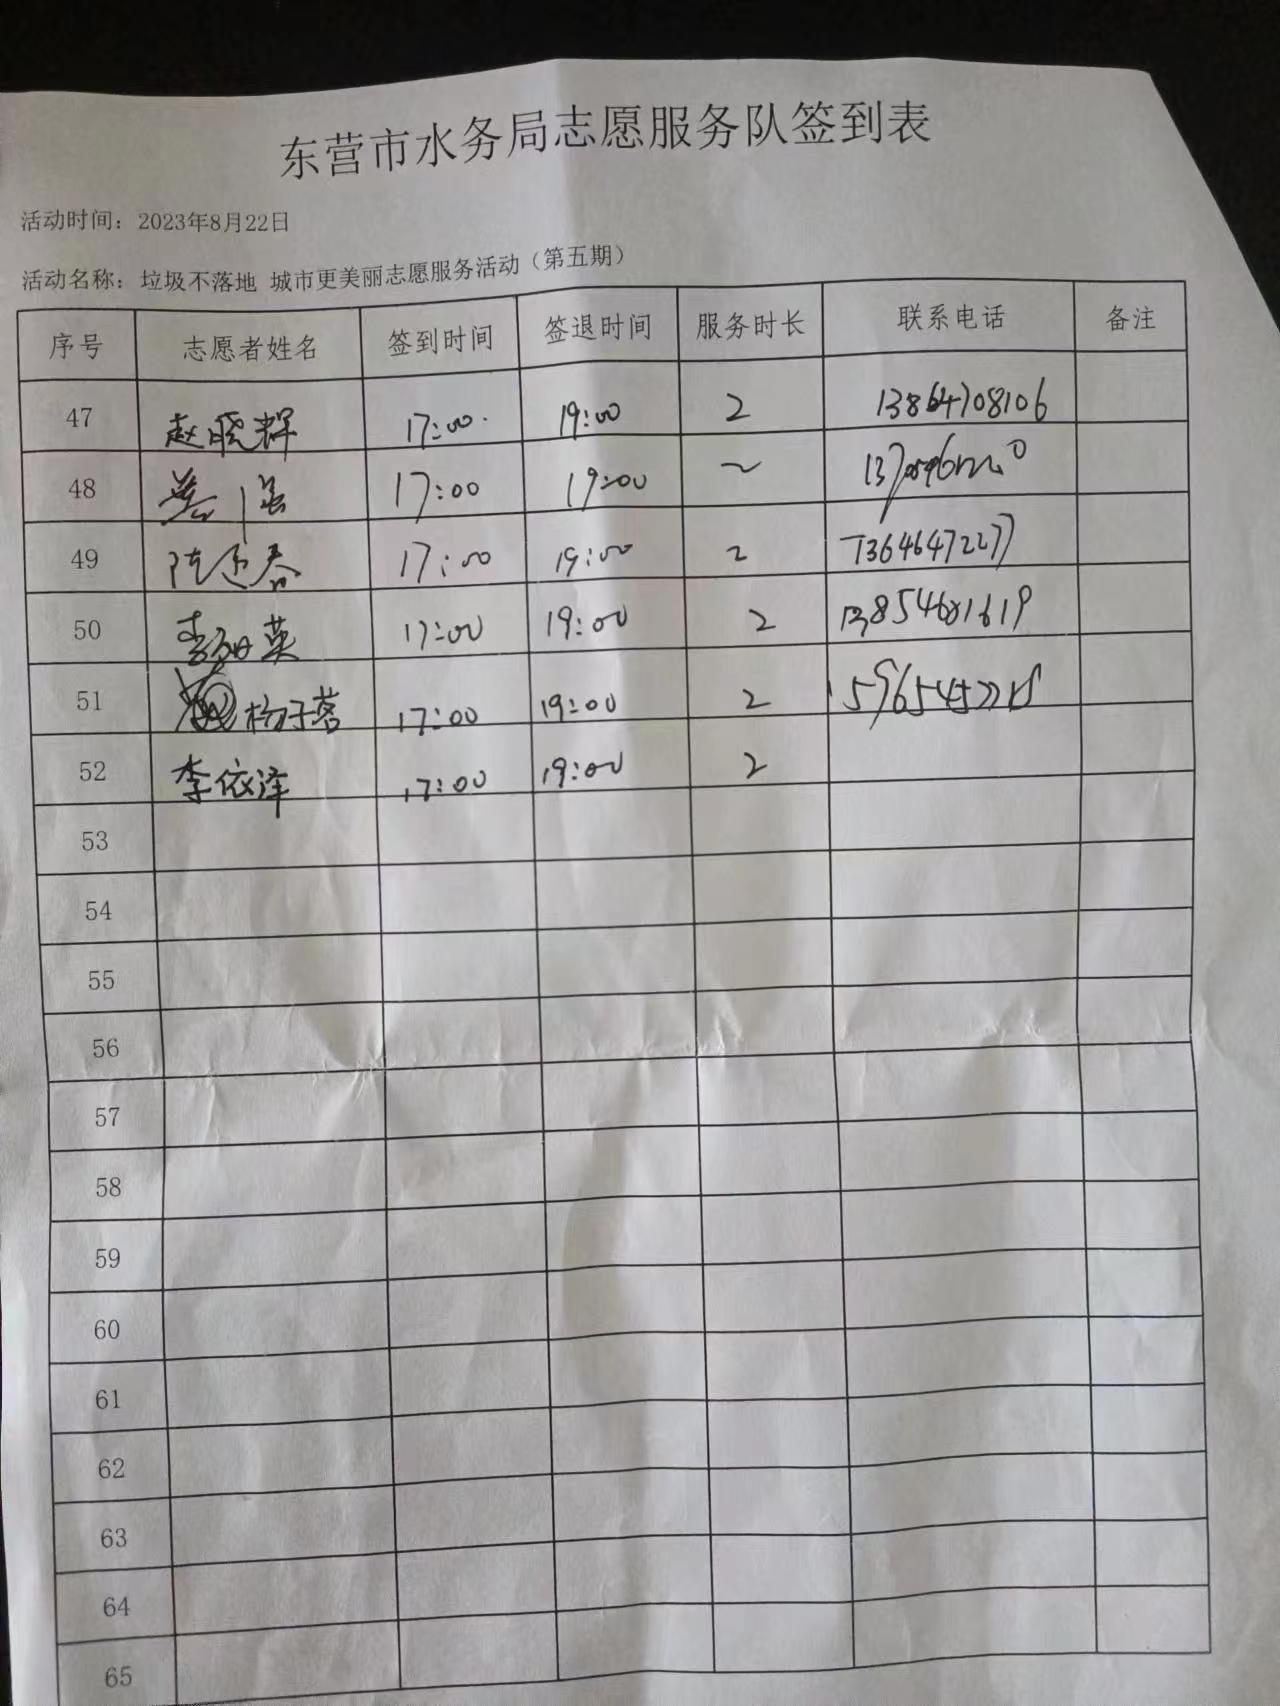 东营市水务局志愿服务队签到表
活动时间：2023年8月22日
活动名称：垃圾不落地 城市更美丽志愿服务活动（第五期）
序号 志愿者姓名 签到时间 签退时间 服务时长 联系电话 备注
47 赵晓辉 17:00 19:00 2 13864708106
48 17:00 19:00 2
49 17:00 19:00 2 13646472277
50 英 17:00 19:00 2 13854681619
51 杨子蓉 17:00 19:00 2
52 李依泽 17:00 19:00 2
53
54
55
56
57
58
59
60
61
62
63
64
65